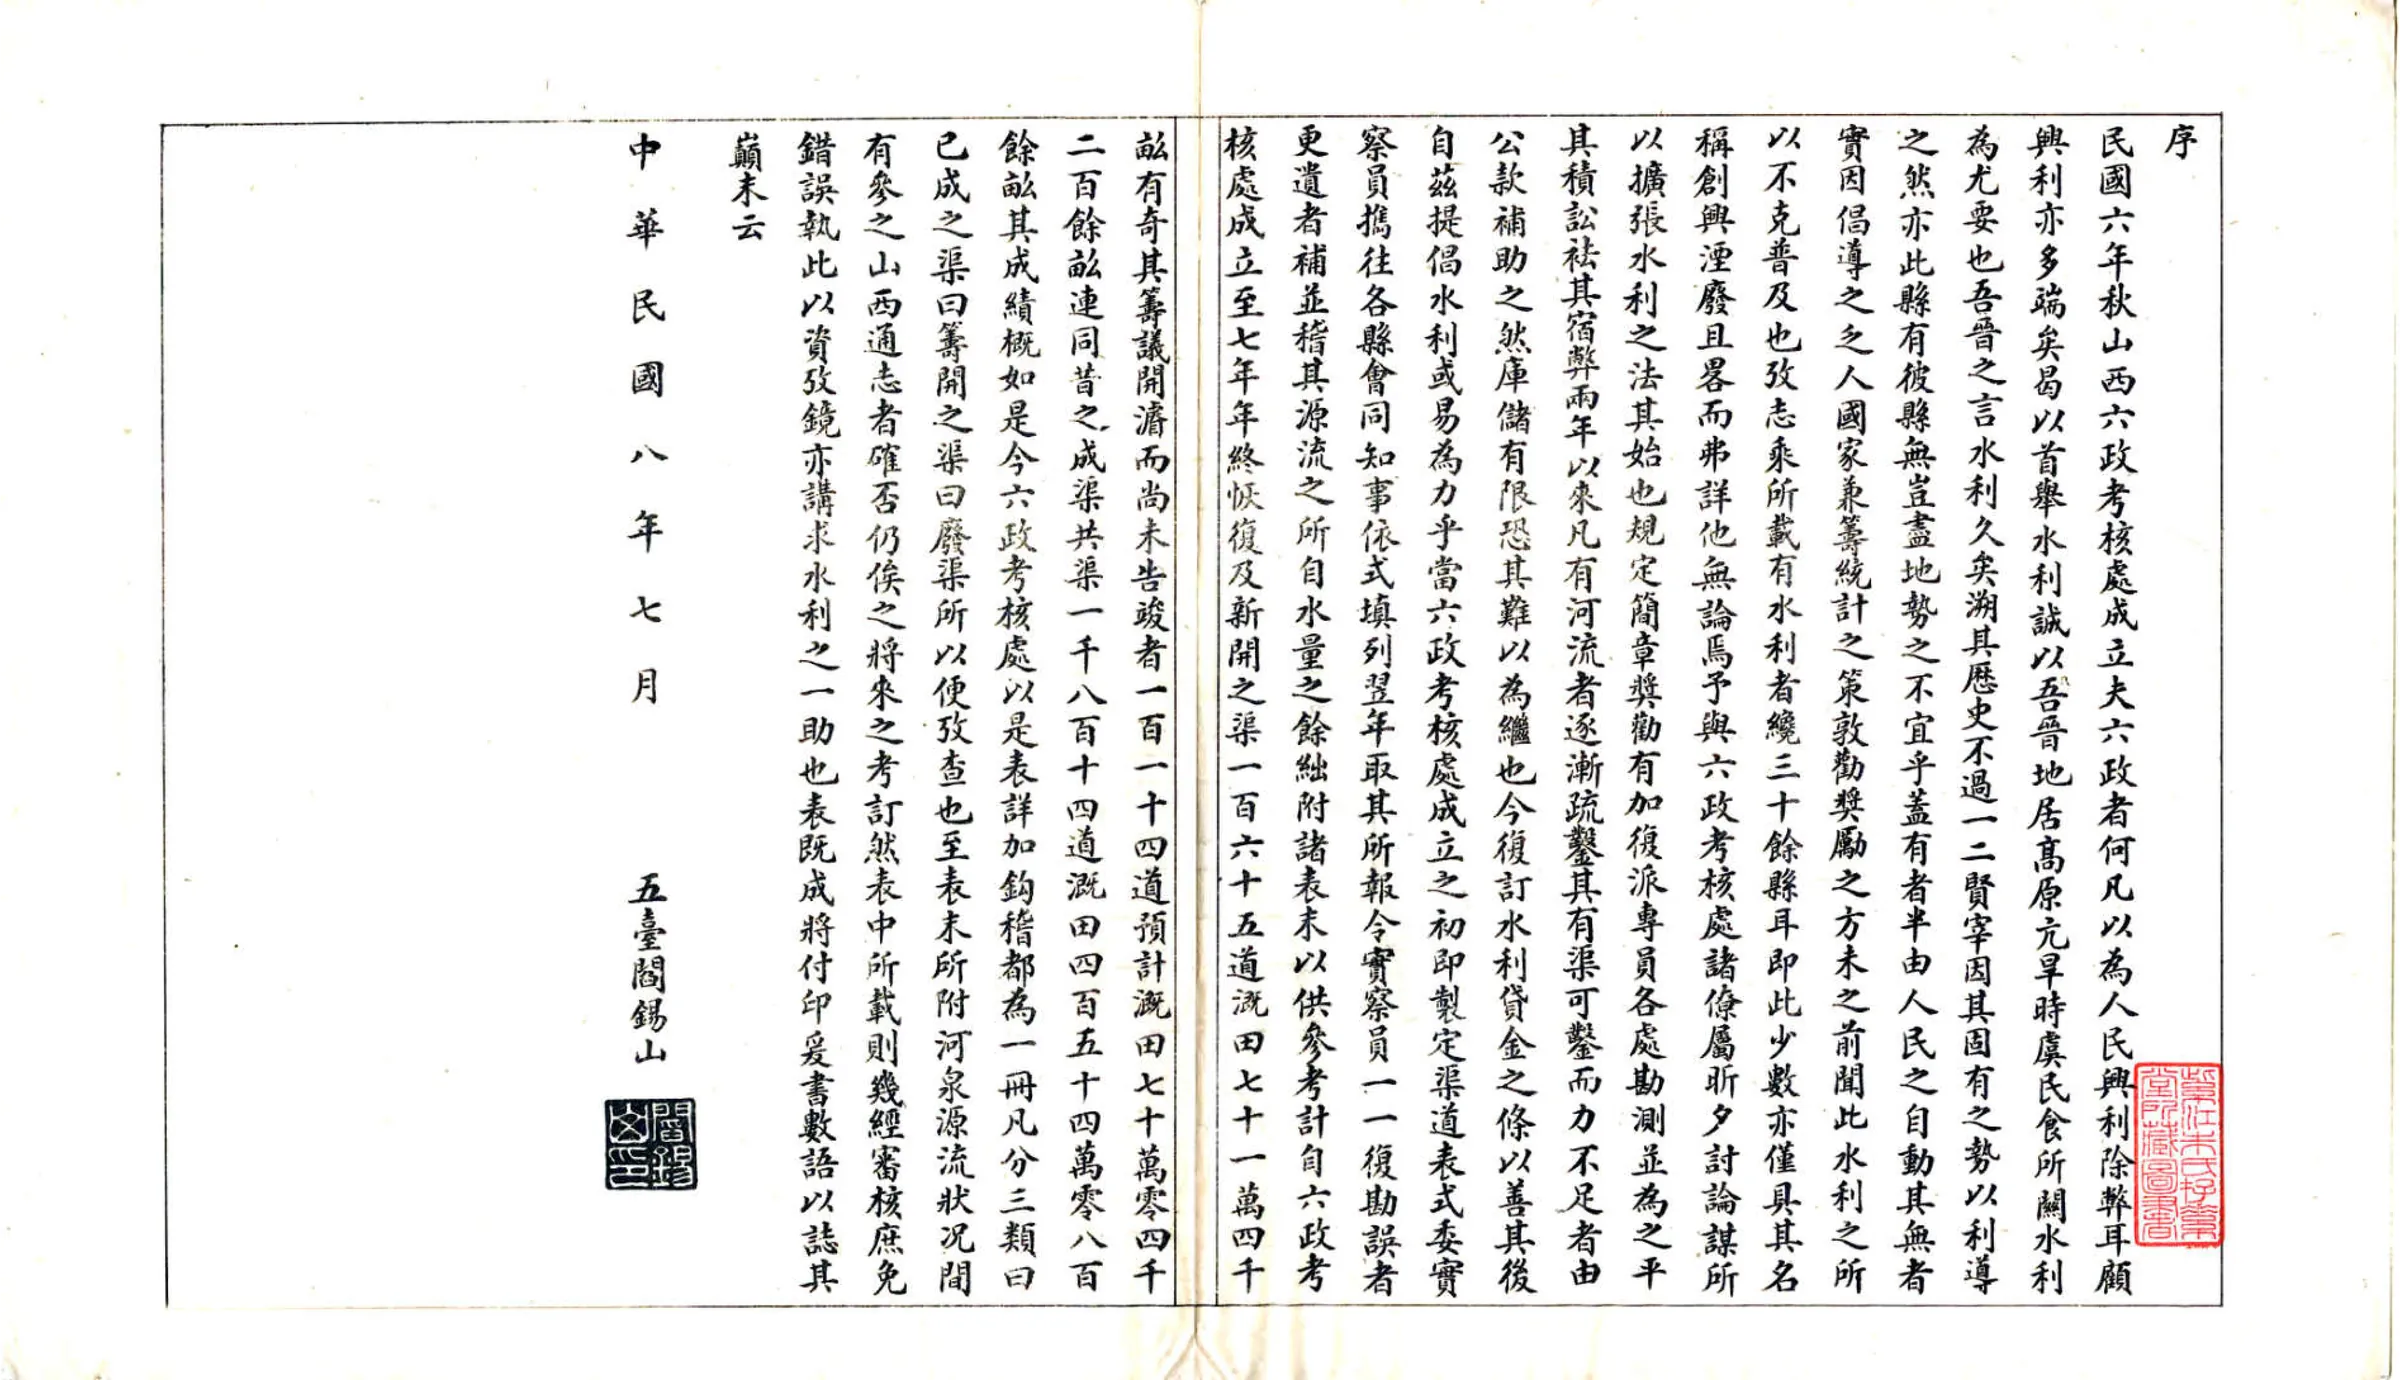 序
民國六年秋山西六政考核處成立夫六政者何凡以為人民興利除弊耳顧
興利亦多端矣曷以首舉水利誠以吾晉地居高原亢旱時虞民食所關水利
為尤要也吾晉之言水利久矣溯其歷史不過一二賢宰因其固有之勢以利導
之然亦此縣有彼縣無豈盡地勢之不宜乎蓋有者半由人民之自動其無者
實因倡導之乏人國家兼籌統計之策敦勸獎勵之方未之前聞此水利之所
以不克普及也攷志乘所載有水利者纔三十餘縣耳即此少數亦僅具其名
稱創興湮廢且畧而弗詳他無論焉予與六政考核處諸僚屬昕夕討論謀所
以擴張水利之法其始也規定簡章獎勸有加復派專員各處勘測並為之平
其積訟祛其宿弊兩年以來凡有河流者逐漸疏鑿其有渠可鑿而力不足者由
公款補助之然庫儲有限恐其難以為繼也今復訂水利貸金之條以善其後
自茲提倡水利或易為力乎當六政考核處成立之初即製定渠道表式委實
察員携往各縣會同知事依式填列翌年取其所報令實察員一一復勘誤者
更遺者補並稽其源流之所自水量之餘絀附諸表末以供參考計自六政考
核處成立至七年年終恢復及新開之渠一百六十五道溉田七十一萬四千
畝有奇其籌議開濬而尚未告竣者一百一十四道預計溉田七十萬零四千
二百餘畝連同昔之成渠共渠一千八百十四道溉田四百五十四萬零八百
餘畝其成績概如是今六政考核處以是表詳加鈎稽都為一冊凡分三類曰
已成之渠曰籌開之渠曰廢渠所以便攷查也至表末所附河泉源流狀况間
有參之山西通志者確否仍俟之將來之考訂然表中所載則幾經審核庶免
錯誤執此以資攷鏡亦講求水利之一助也表既成將付印爰書數語以誌其
巔末云
中華民國八年七月 五臺閻錫山
閻錫山印